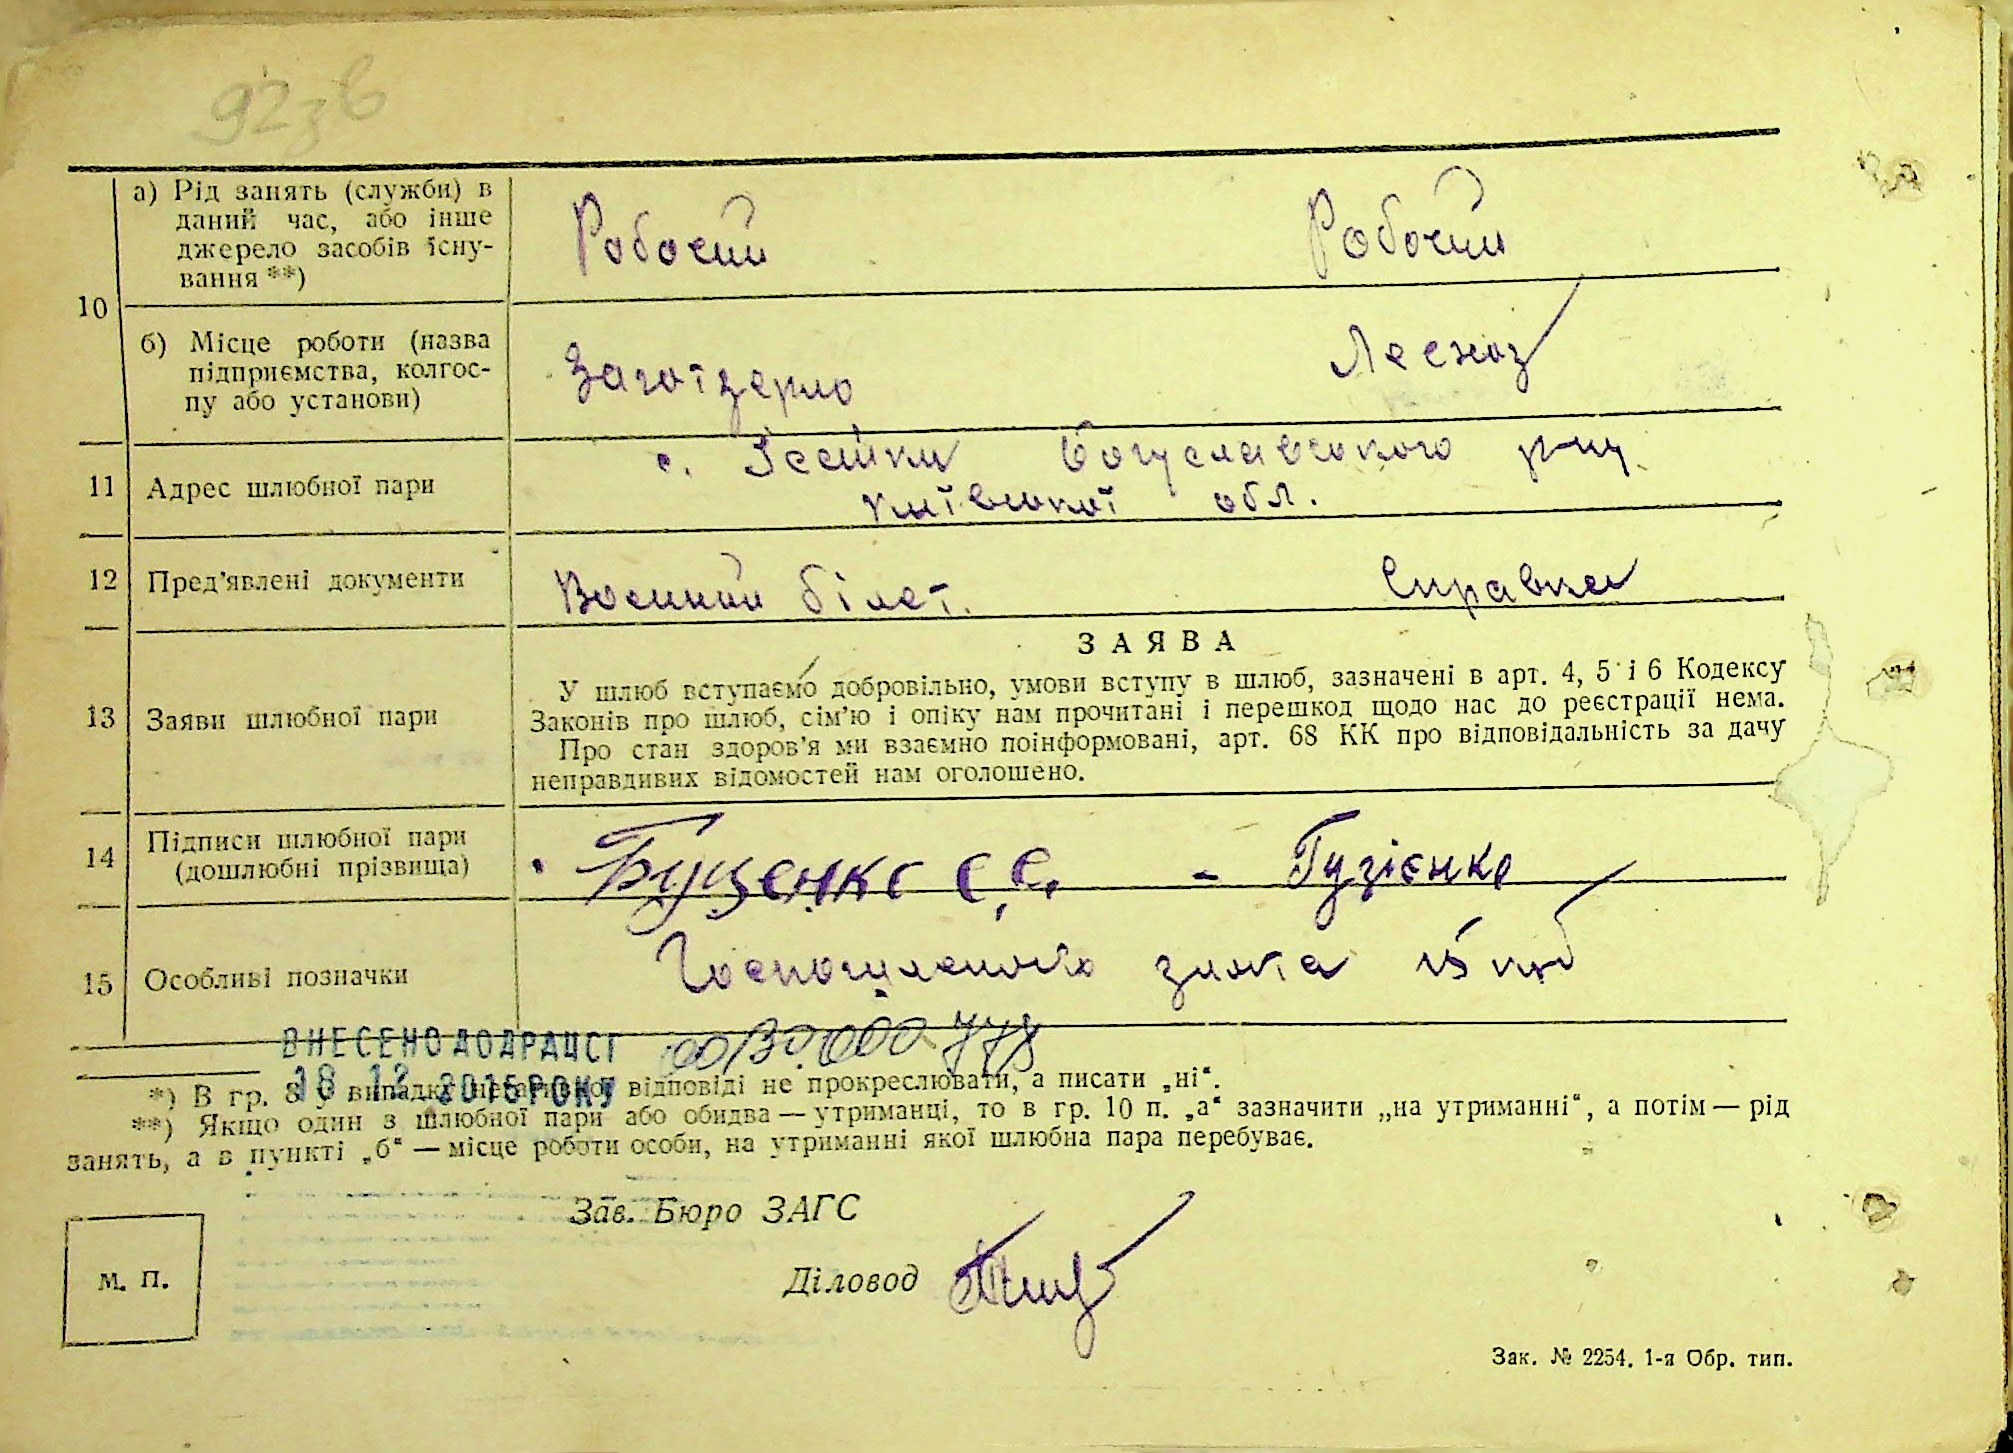 92зв
а) Рід занять (служби) в
даний час, або інше
джерело засобів існу-
вання **)
Робочий Робочий
10
б) Місце роботи (назва
підприємства, колгос-
пу або установи)
Заготзерно Лесхоз
11 Адрес шлюбної пари
с. Ісайки Богуславського р-ну
Київської обл.
12 Пред’явлені документи Воєнний білет. Справка
13 Заяви шлюбної пари
ЗАЯВА
У шлюб вступаємо добровільно, умови вступу в шлюб, зазначені в арт. 4, 5 і 6 Кодексу
Законів про шлюб, сім’ю і опіку нам прочитані і перешкод щодо нас до реєстрації нема.
Про стан здоров’я ми взаємно поінформовані, арт. 68 КК про відповідальність за дачу
неправдивих відомостей нам оголошено.
14 Підписи шлюбної пари
(дошлюбні прізвища)
Буценко Є Є. - Гузієнко
15 Особливі позначки
знята 15 крб
ВНЕСЕНО ДО ДРАЦСГ
18 12 2015 РОКУ
*) В гр. 8 у випадку негативної відповіді не прокреслювати, а писати „ні“.
**) Якщо один з шлюбної пари або обидва — утриманці, то в гр. 10 п. „а“ зазначити „на утриманні“, а потім — рід
занять, а в пункті „б“ — місце роботи особи, на утриманні якої шлюбна пара перебуває.
Зав. Бюро ЗАГС
М. П.
Діловод
Зак. № 2254. 1-я Обр. тип.